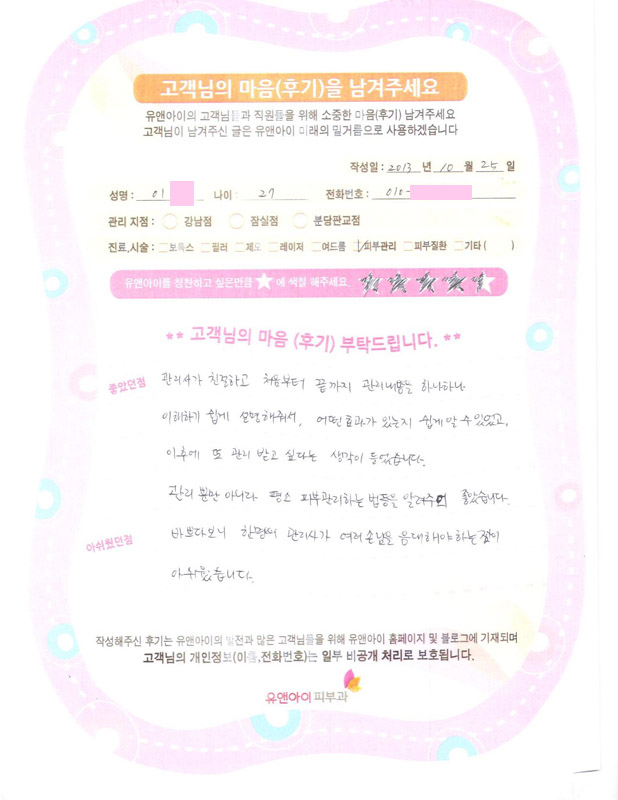 고객님의 마음(후기)을 남겨주세요
유앤아이의 고객님들과 직원들을 위해 소중한 마음(후기) 남겨주세요
고객님이 남겨주신 글은 유앤아이 미래의 밑거름으로 사용하겠습니다
작성일 : 2013 년 10 월 25 일
성명 : 이 나이 : 27 전화번호 : 010-
관리 지점 : 강남점 잠실점 분당판교점
진료,시술 : 보톡스 필러 제모 레이저 여드름 피부관리 피부질환 기타 ( )
유앤아이를 칭찬하고 싶은만큼 ★ 에 색칠 해주세요
** 고객님의 마음 (후기) 부탁드립니다. **
좋았던점 관리사가 친절하고 처음부터 끝까지 관리내용을 하나하나
이해하기 쉽게 설명해줘서, 어떤효과가 있는지 쉽게 알 수 있었고,
이후에 또 관리 받고 싶다는 생각이 들었습니다.
관리 뿐만 아니라 평소 피부관리하는 법등을 알려주어 좋았습니다.
아쉬웠던점 바쁘다보니 한명의 관리사가 여러 손님을 응대해야 하는 점이
아쉬웠습니다.
작성해주신 후기는 유앤아이의 발전과 많은 고객님들을 위해 유앤아이 홈페이지 및 블로그에 기재되며
고객님의 개인정보(이름,전화번호)는 일부 비공개 처리로 보호됩니다.
유앤아이피부과